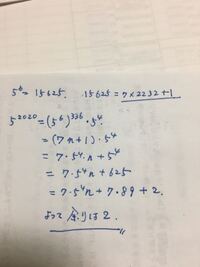 5⁶ = 15625. 15625 = 7×2232+1
5²⁰²⁰ = (5⁶)³³⁶・5⁴
= (7n+1)・5⁴
= 7・5⁴n+5⁴
= 7・5⁴n+625
= 7・5⁴n+7・89+2.
よって余りは2.